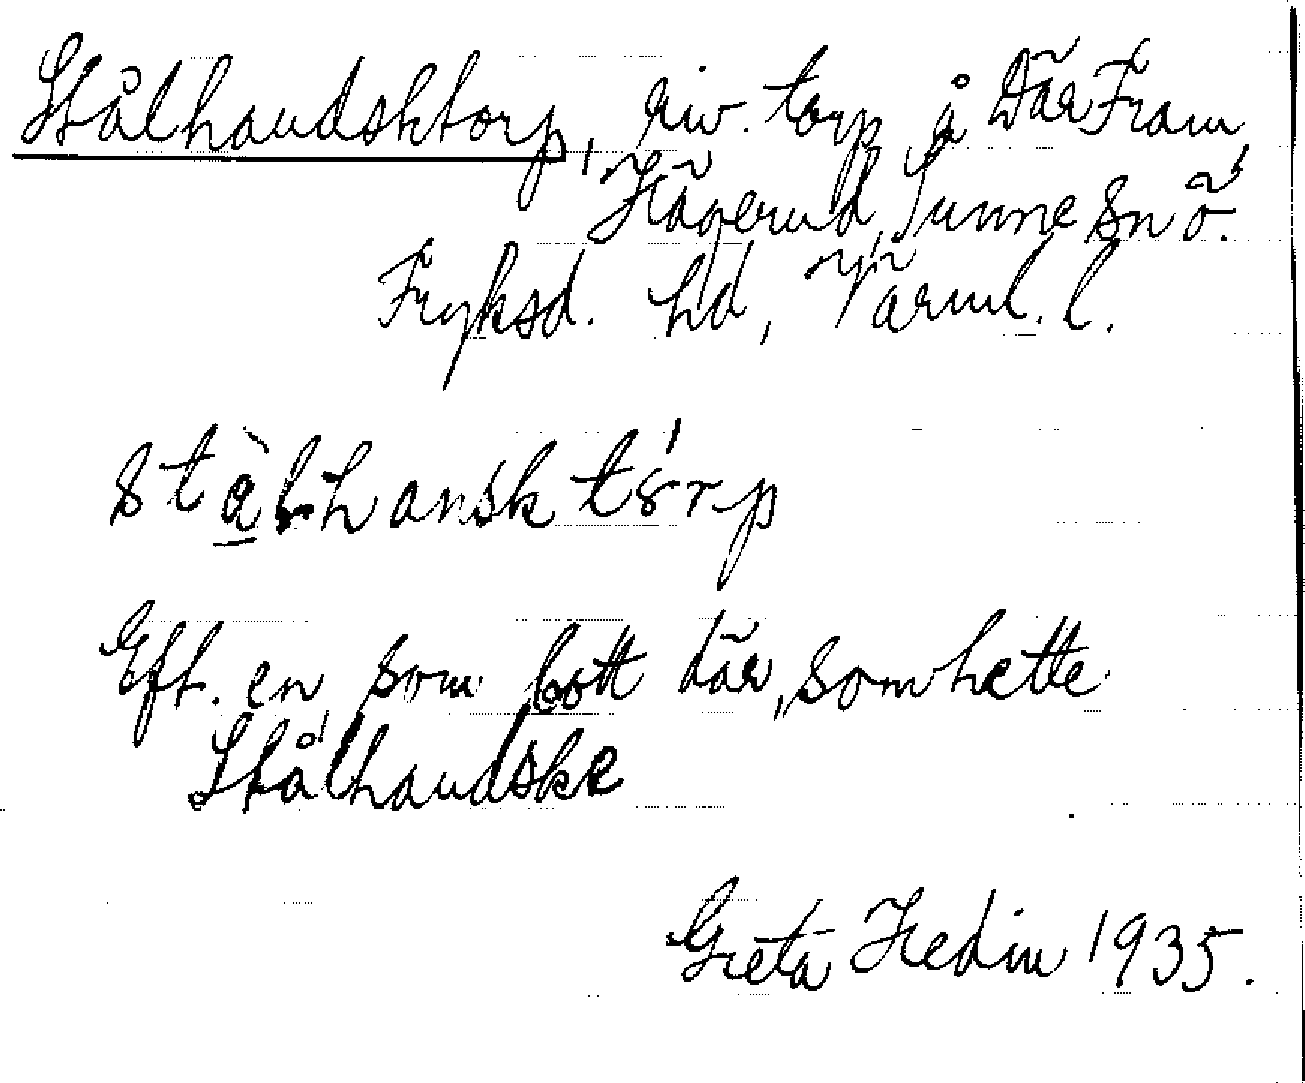 Stålhandsktorp, riv. torp å Där Fram
Hågerud, Sunne sn ö.
Fryksd. hd, Värml. l.
stålhansktörp
Eft. en som bott där, som hette
Stålhandske
Greta Hedin 1935.